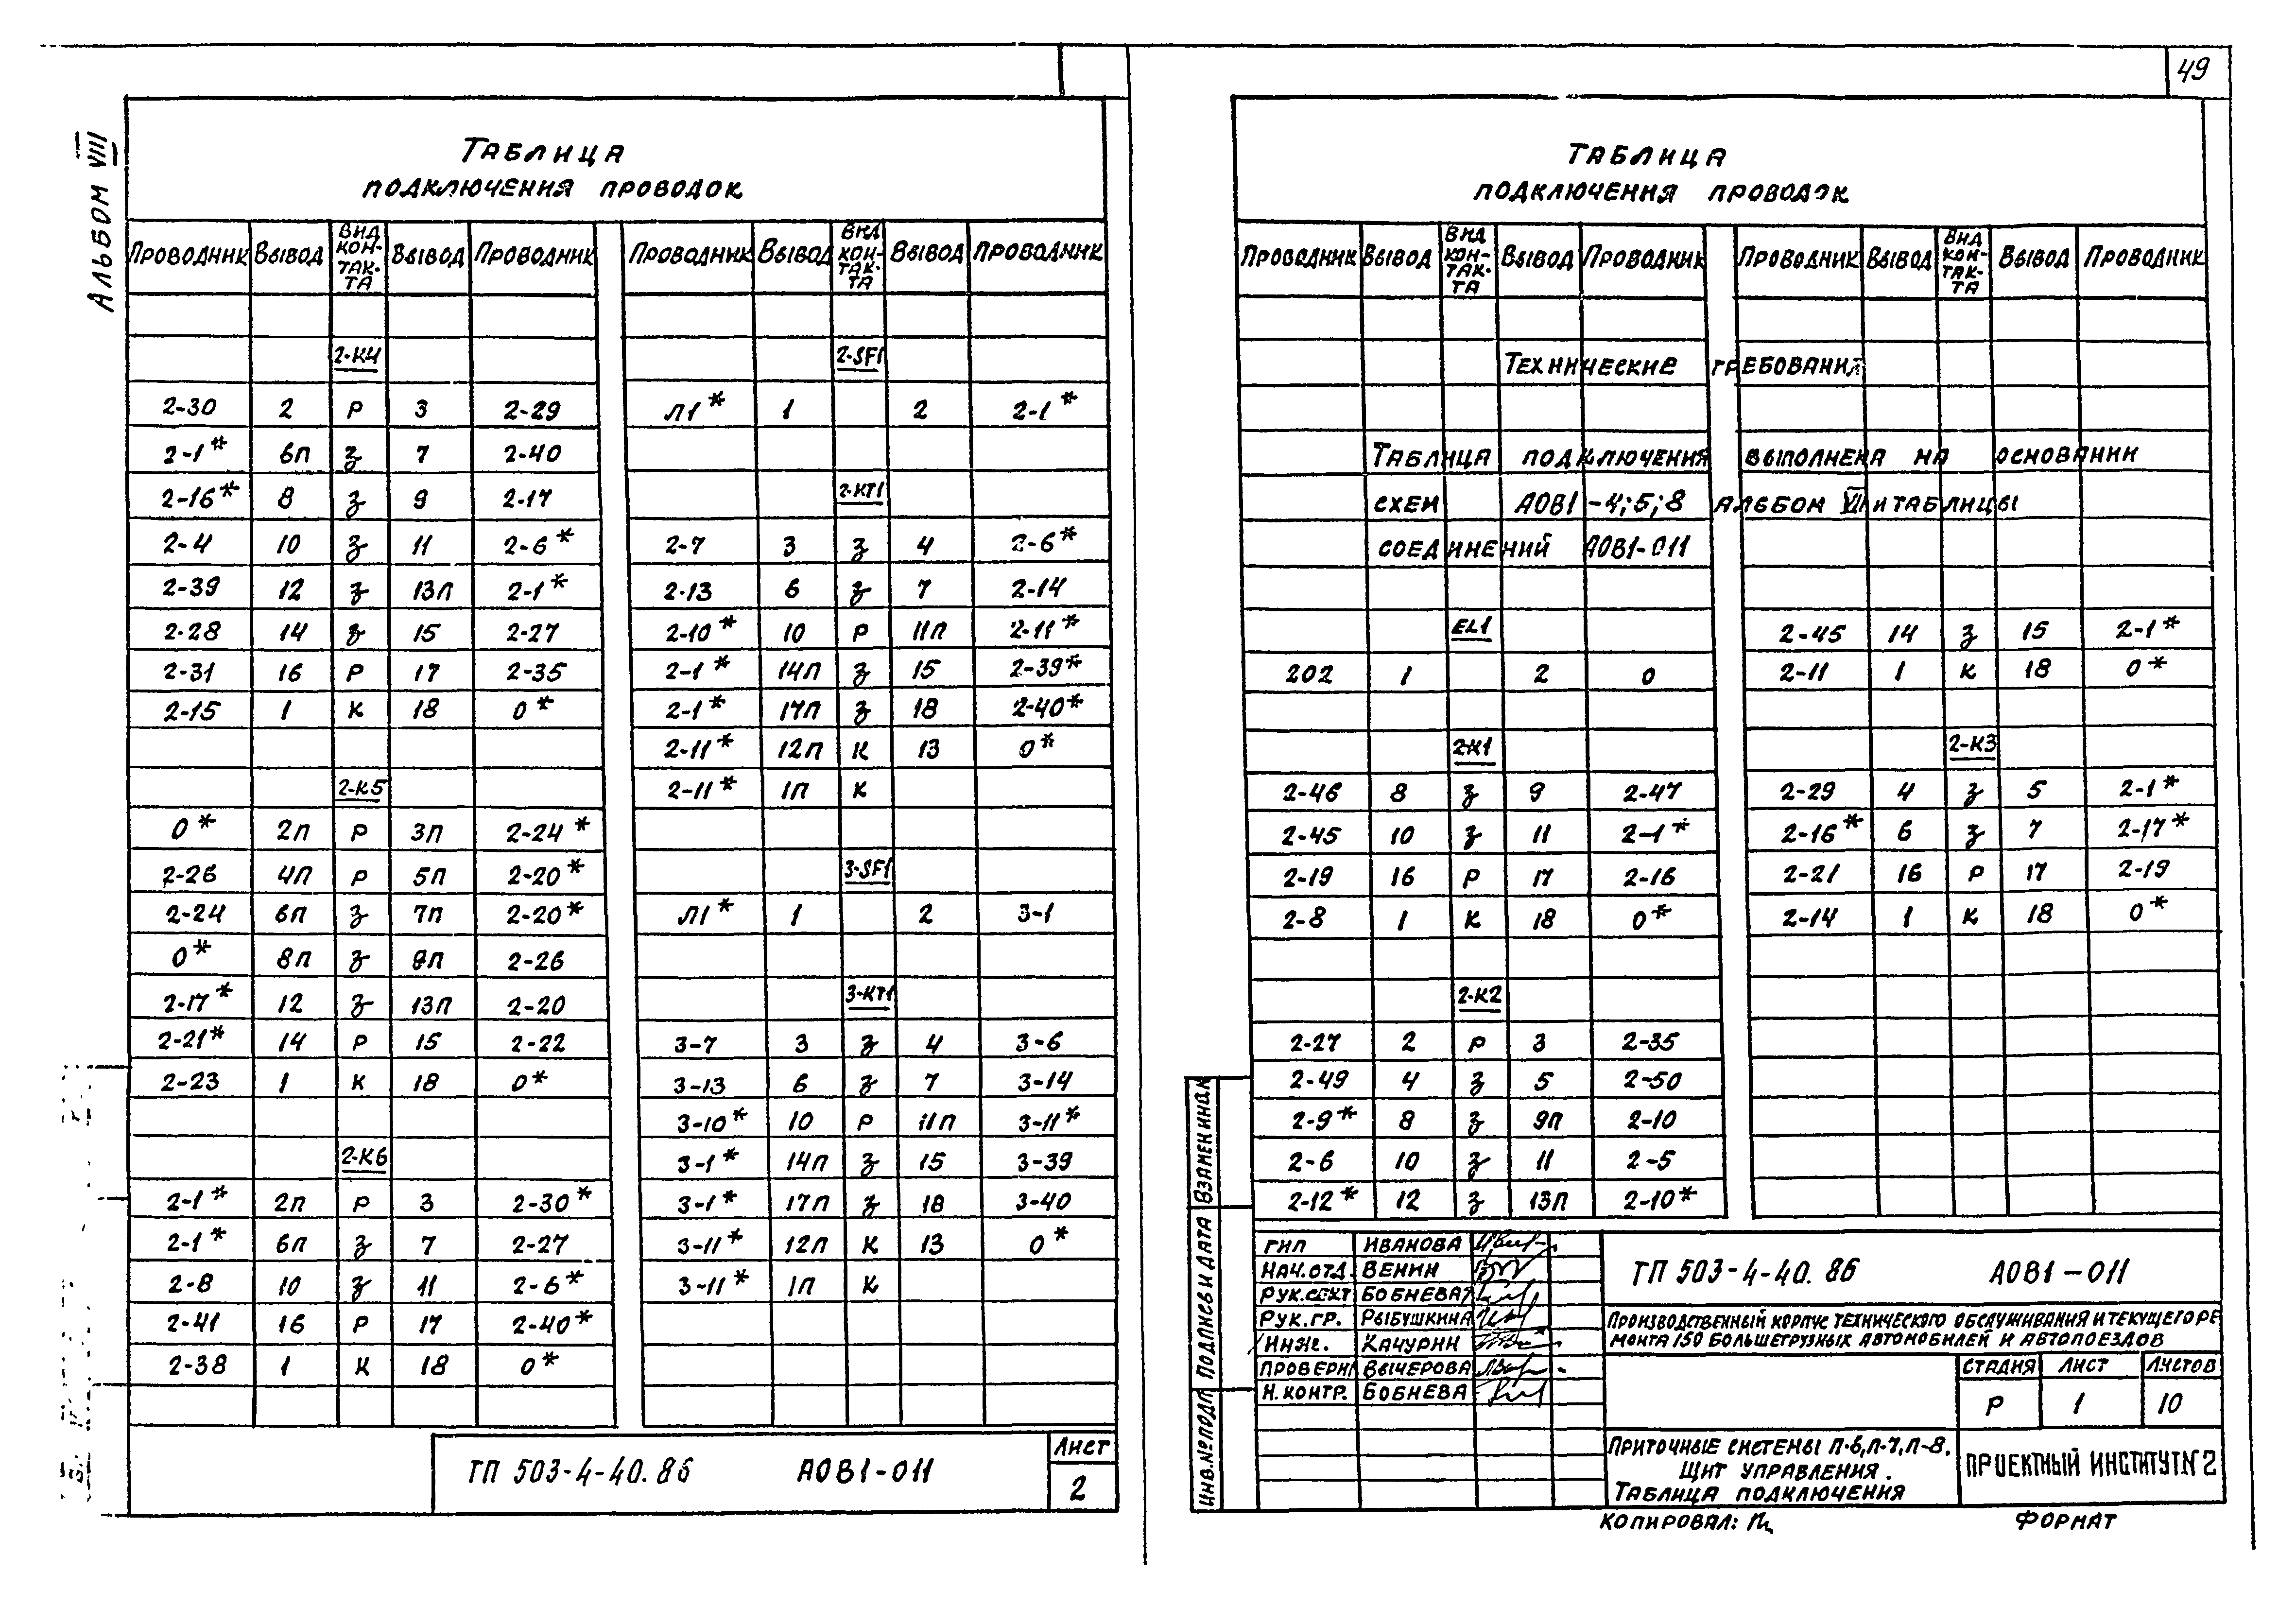 49
АЛЬБОМ VIII
ТАБЛИЦА
ПОДКЛЮЧЕНИЯ ПРОВОДОК
ПРОВОДНИК ВЫВОД ВИД КОН-ТАК-ТА ВЫВОД ПРОВОДНИК
2-К4
2-30 2 Р 3 2-29
2-1* 6П З 7 2-40
2-16* 8 З 9 2-17
2-4 10 З 11 2-6*
2-39 12 З 13П 2-1*
2-28 14 З 15 2-27
2-31 16 Р 17 2-35
2-15 1 К 18 0*
2-К5
0* 2П Р 3П 2-24*
2-26 4П Р 5П 2-20*
2-24 6П З 7П 2-20*
0* 8П З 9П 2-26
2-17* 12 З 13П 2-20
2-21* 14 Р 15 2-22
2-23 1 К 18 0*
2-К6
2-1* 2П Р 3 2-30*
2-1* 6П З 7 2-27
2-8 10 З 11 2-6*
2-41 16 Р 17 2-40*
2-38 1 К 18 0*
ПРОВОДНИК ВЫВОД ВИД КОН-ТАК-ТА ВЫВОД ПРОВОДНИК
2-SF1
Л1* 1 2 2-1*
2-КТ1
2-7 3 З 4 2-6*
2-13 6 З 7 2-14
2-10* 10 Р 11П 2-11*
2-1* 14П З 15 2-39*
2-1* 17П З 18 2-40*
2-11* 12П К 13 0*
2-11* 1П К
3-SF1
Л1* 1 2 3-1
3-КТ1
3-7 3 З 4 3-6
3-13 6 З 7 3-14
3-10* 10 Р 11П 3-11*
3-1* 14П З 15 3-39
3-1* 17П З 18 3-40
3-11* 12П К 13 0*
3-11* 1П К
ТП 503-4-40.86 АОВ1-011
ЛИСТ
2
ТАБЛИЦА
ПОДКЛЮЧЕНИЯ ПРОВОДОК
ПРОВОДНИК ВЫВОД ВИД КОН-ТАК-ТА ВЫВОД ПРОВОДНИК ПРОВОДНИК ВЫВОД ВИД КОН-ТАК-ТА ВЫВОД ПРОВОДНИК
ТЕХНИЧЕСКИЕ ТРЕБОВАНИЯ
ТАБЛИЦА ПОДКЛЮЧЕНИЯ ВЫПОЛНЕНА НА ОСНОВАНИИ
СХЕМ АОВ1-4;5;8 АЛЬБОМ VII И ТАБЛИЦЫ
СОЕДИНЕНИЙ АОВ1-011
EL1
202 1 2 0
2-К1
2-46 8 З 9 2-47
2-45 10 З 11 2-1*
2-19 16 Р 17 2-16
2-8 1 К 18 0*
2-К2
2-27 2 Р 3 2-35
2-49 4 З 5 2-50
2-9* 8 З 9П 2-10
2-6 10 З 11 2-5
2-12* 12 З 13П 2-10*
2-45 14 З 15 2-1*
2-11 1 К 18 0*
2-К3
2-29 4 З 5 2-1*
2-16* 6 З 7 2-17*
2-21 16 Р 17 2-19
2-14 1 К 18 0*
ВЗАМЕН ИНВ.
ПОДПИСЬ И ДАТА
ИНВ.№ ПОДЛ
ГИП ИВАНОВА
НАЧ.ОТД. ВЕНИН
РУК.СЕКТ БОБНЕВА
РУК.ГР. РЫБУШКИНА
ИНЖ. КАЧУРИН
ПРОВЕРИЛ ВЫЧЕРОВА
Н.КОНТР. БОБНЕВА
ТП 503-4-40.86 АОВ1-011
ПРОИЗВОДСТВЕННЫЙ КОРПУС ТЕХНИЧЕСКОГО ОБСЛУЖИВАНИЯ И ТЕКУЩЕГО РЕ
МОНТА 150 БОЛЬШЕГРУЗНЫХ АВТОМОБИЛЕЙ И АВТОПОЕЗДОВ
СТАДИЯ ЛИСТ ЛИСТОВ
Р 1 10
ПРИТОЧНЫЕ СИСТЕМЫ П-6,П-7,П-8.
ЩИТ УПРАВЛЕНИЯ.
ТАБЛИЦА ПОДКЛЮЧЕНИЯ
ПРОЕКТНЫЙ ИНСТИТУТ N2
КОПИРОВАЛ: ФОРМАТ